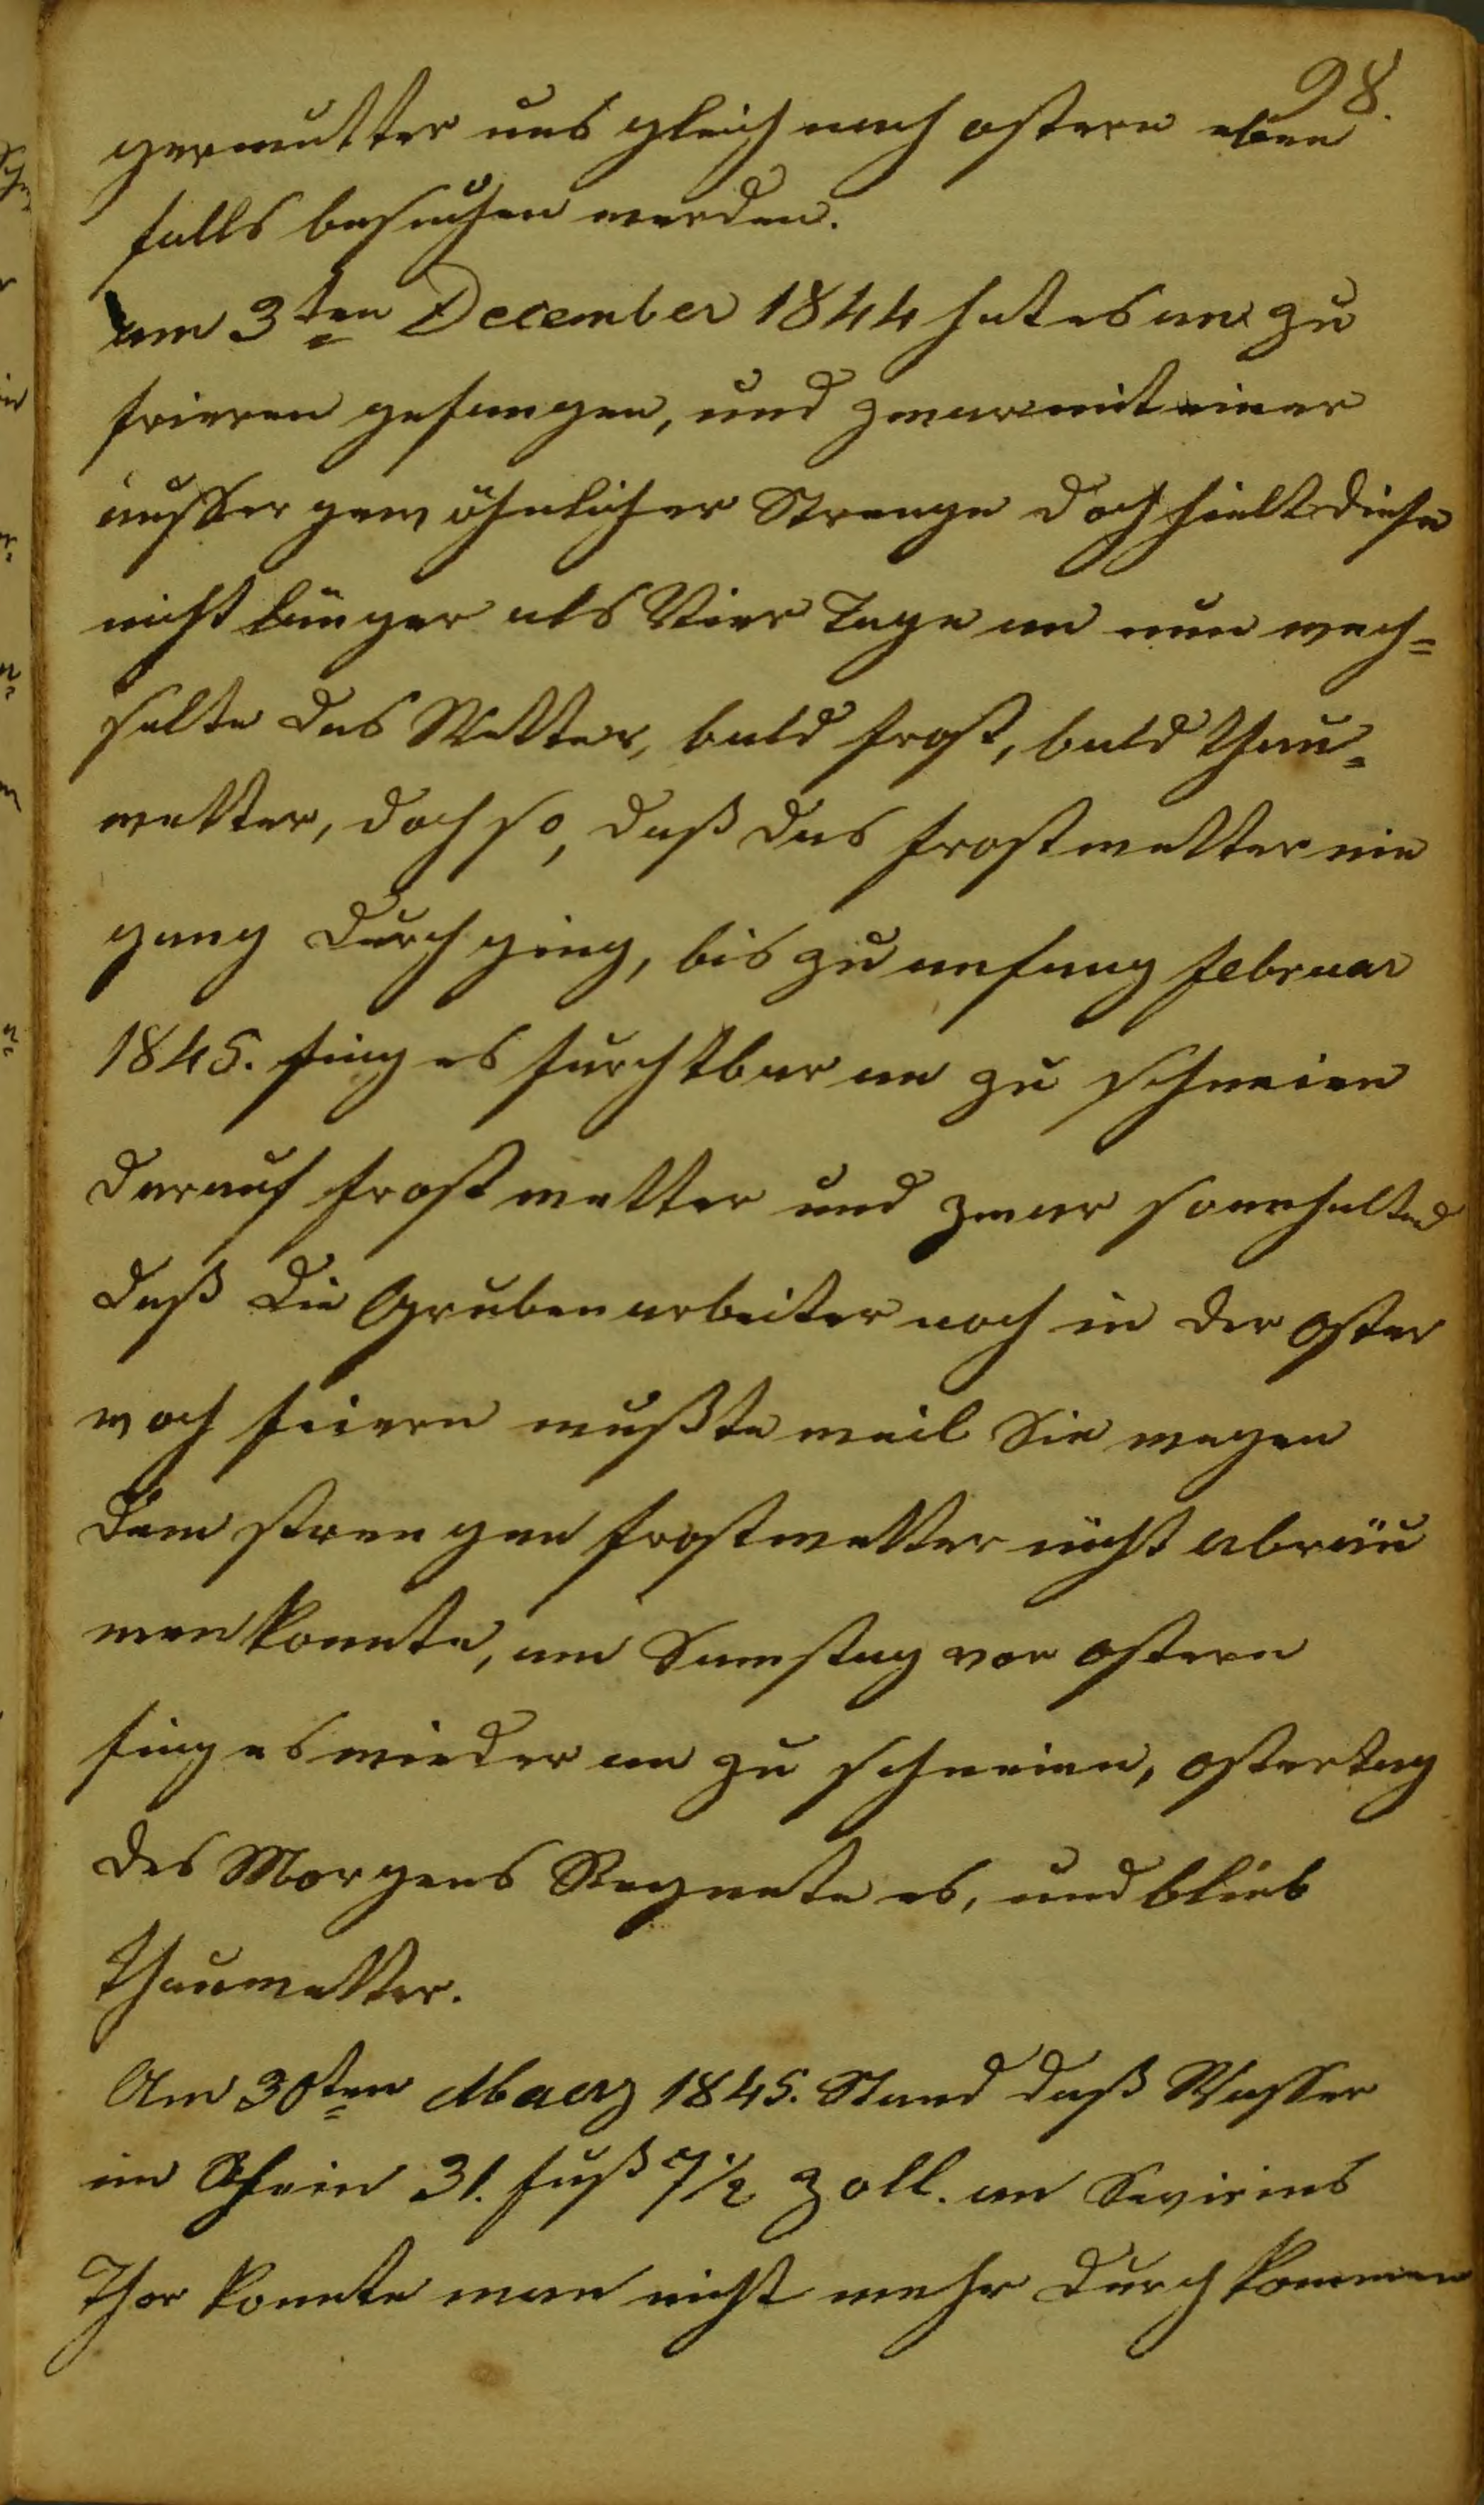 98.
germutter uns gleich nach ostern eben
falls besuchen werden.
am 3ten December 1844 hat es an zu
frieren gefangen, und zwar mit einer
ausser gewöhnlicher Strenge doch hielt diese
nicht länger als Vier Tage an nun wech=
selte das Wetter, bald frost, bald Thau=
wetter, doch so, daß das frostwetter nie
ganz durch ging, bis zu anfang februar
1845. fing es furchtbar an zu schneien
darauf frost wetter und zwar so anhaltend
daß die Grubenarbeiter noch in der oster
woch feiern mußte weil Sie wegen
dem strengen frostwetter nicht abräu
men konnte, am Samstag vor ostern
fing es wieder an zu schneien, ostertag
des Morgens Regnete es, und blieb
Thauwetter.
Am 30ten Maerz 1845. Stand daß Wasser
im Rhein 31. fuß 7½ Zoll. an Sevirins
Thor konnte man nicht mehr durch kommen